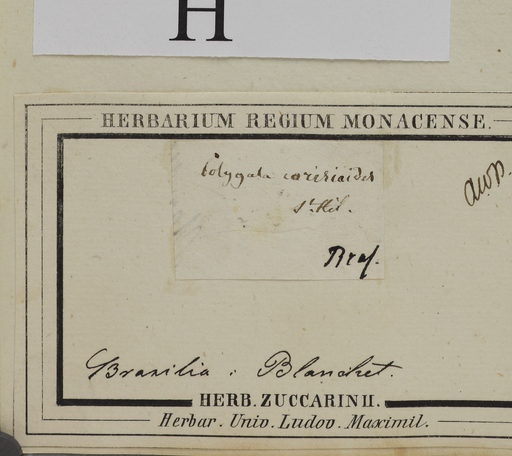 H
HERBARIUM REGIUM MONACENSE.
Polygala
St. Hil.
Brasilia : Blanchet.
HERB. ZUCCARINII.
Herbar. Univ. Ludov. Maximil.